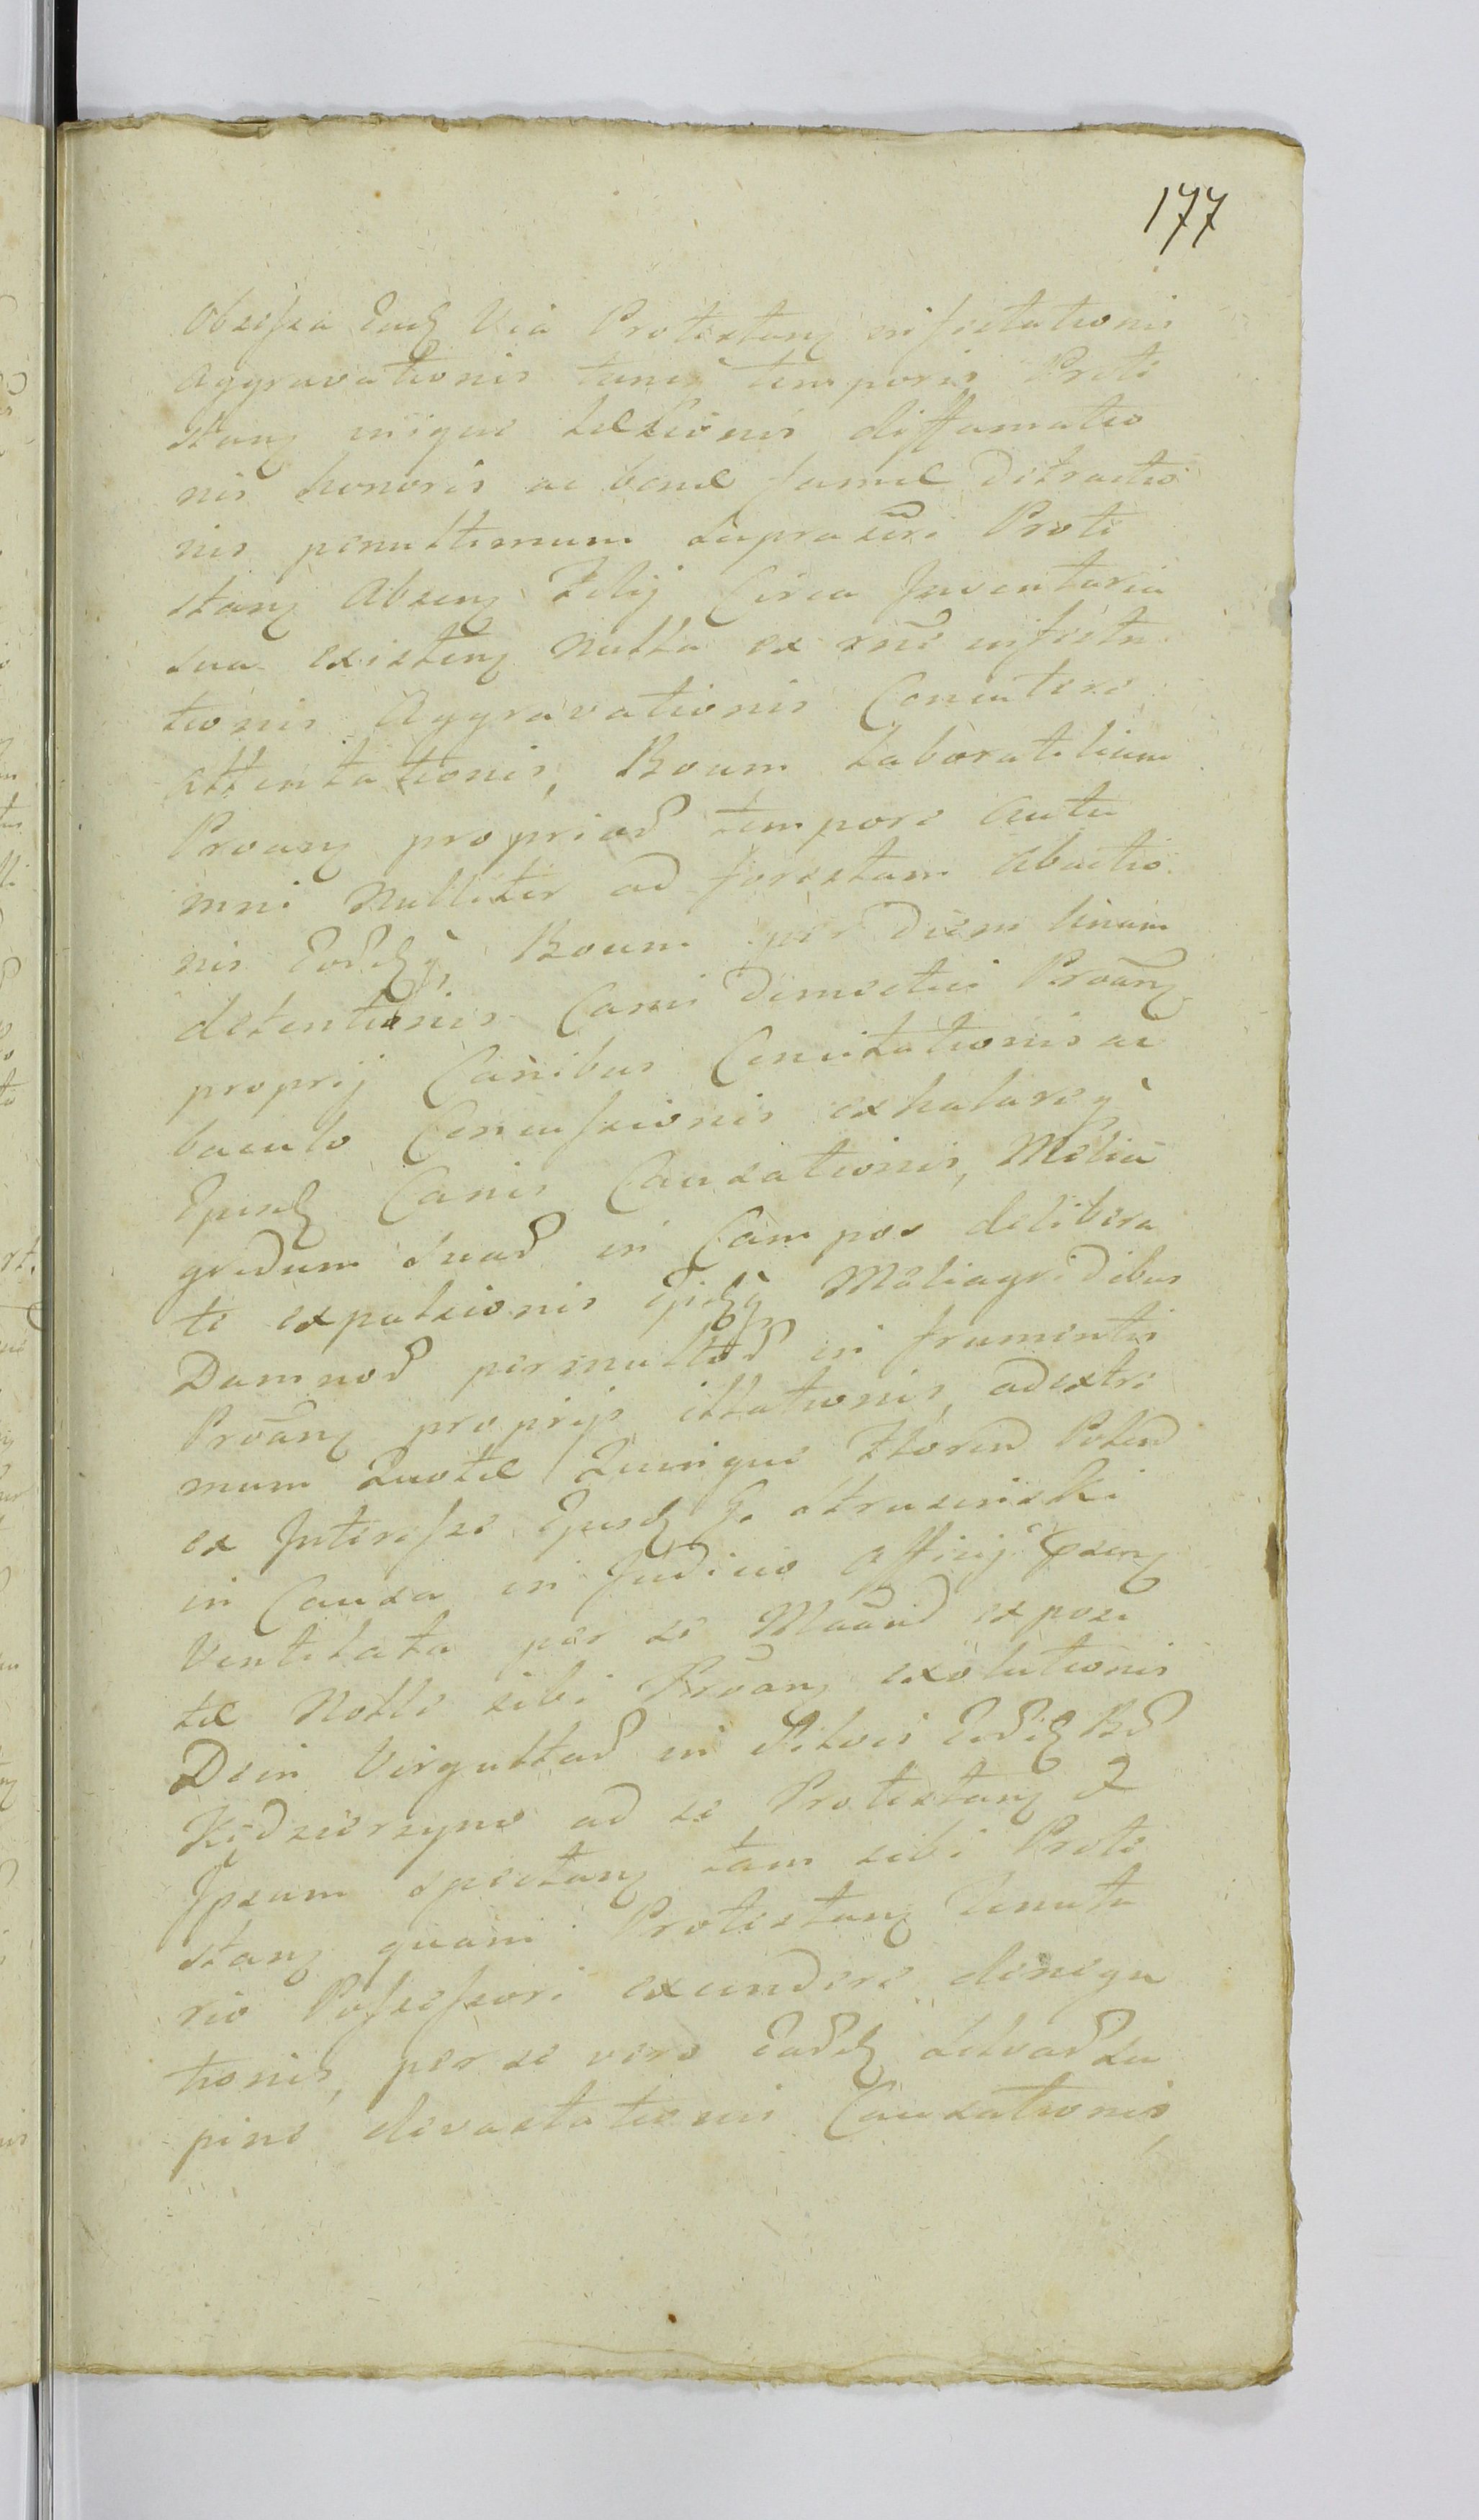 177
Obsessa Eadz Via Protestanz infestationis
Aggravationis tanqz temporis Prote
stanz inique Læsionis diffamatio
nis honoris ac bonæ famæ Detractio
nis penultimum supra Prote
stanz Absenz Filij Circa Inventaria
sua existenz Nulla ex infesta
tionis Aggravationis Concutere
attentationis, Boum Laboratilium
Proanz propriaD tempore Autu
mni Nulliter ad forestam Abactio
nis Boum per Diem Unum
detentionis Canis Domestici Proanz
proprij Canibus Concitationis ac
baculo Concussionis exhalareqz
Ejusdz Canis Causationis, Melia
gridum suaD in Campos delibera
te expulsionis Meliagridibus
DamnoD permultoD in frumentis
Proanz proprijs illationis, ad extre
mum Quotæ Quinque FlorenD PolonD
ex Interesse Ejusdz G. Struzinski
in Causa in Judicio Officij
Ventilata per se expozi
tæ Nolle sibi Proanz exolutionis
Dein VirgultaD in Silvis BD
Kędzierzyno ad se Protestanz &
Ipsum spectanz tam sibi Prote
stanz quam Protestanz Tenuta
rio Possessori excindere denega
tionis, per se vero Eadz SilvaD Lu
pine devastationis Causationis,